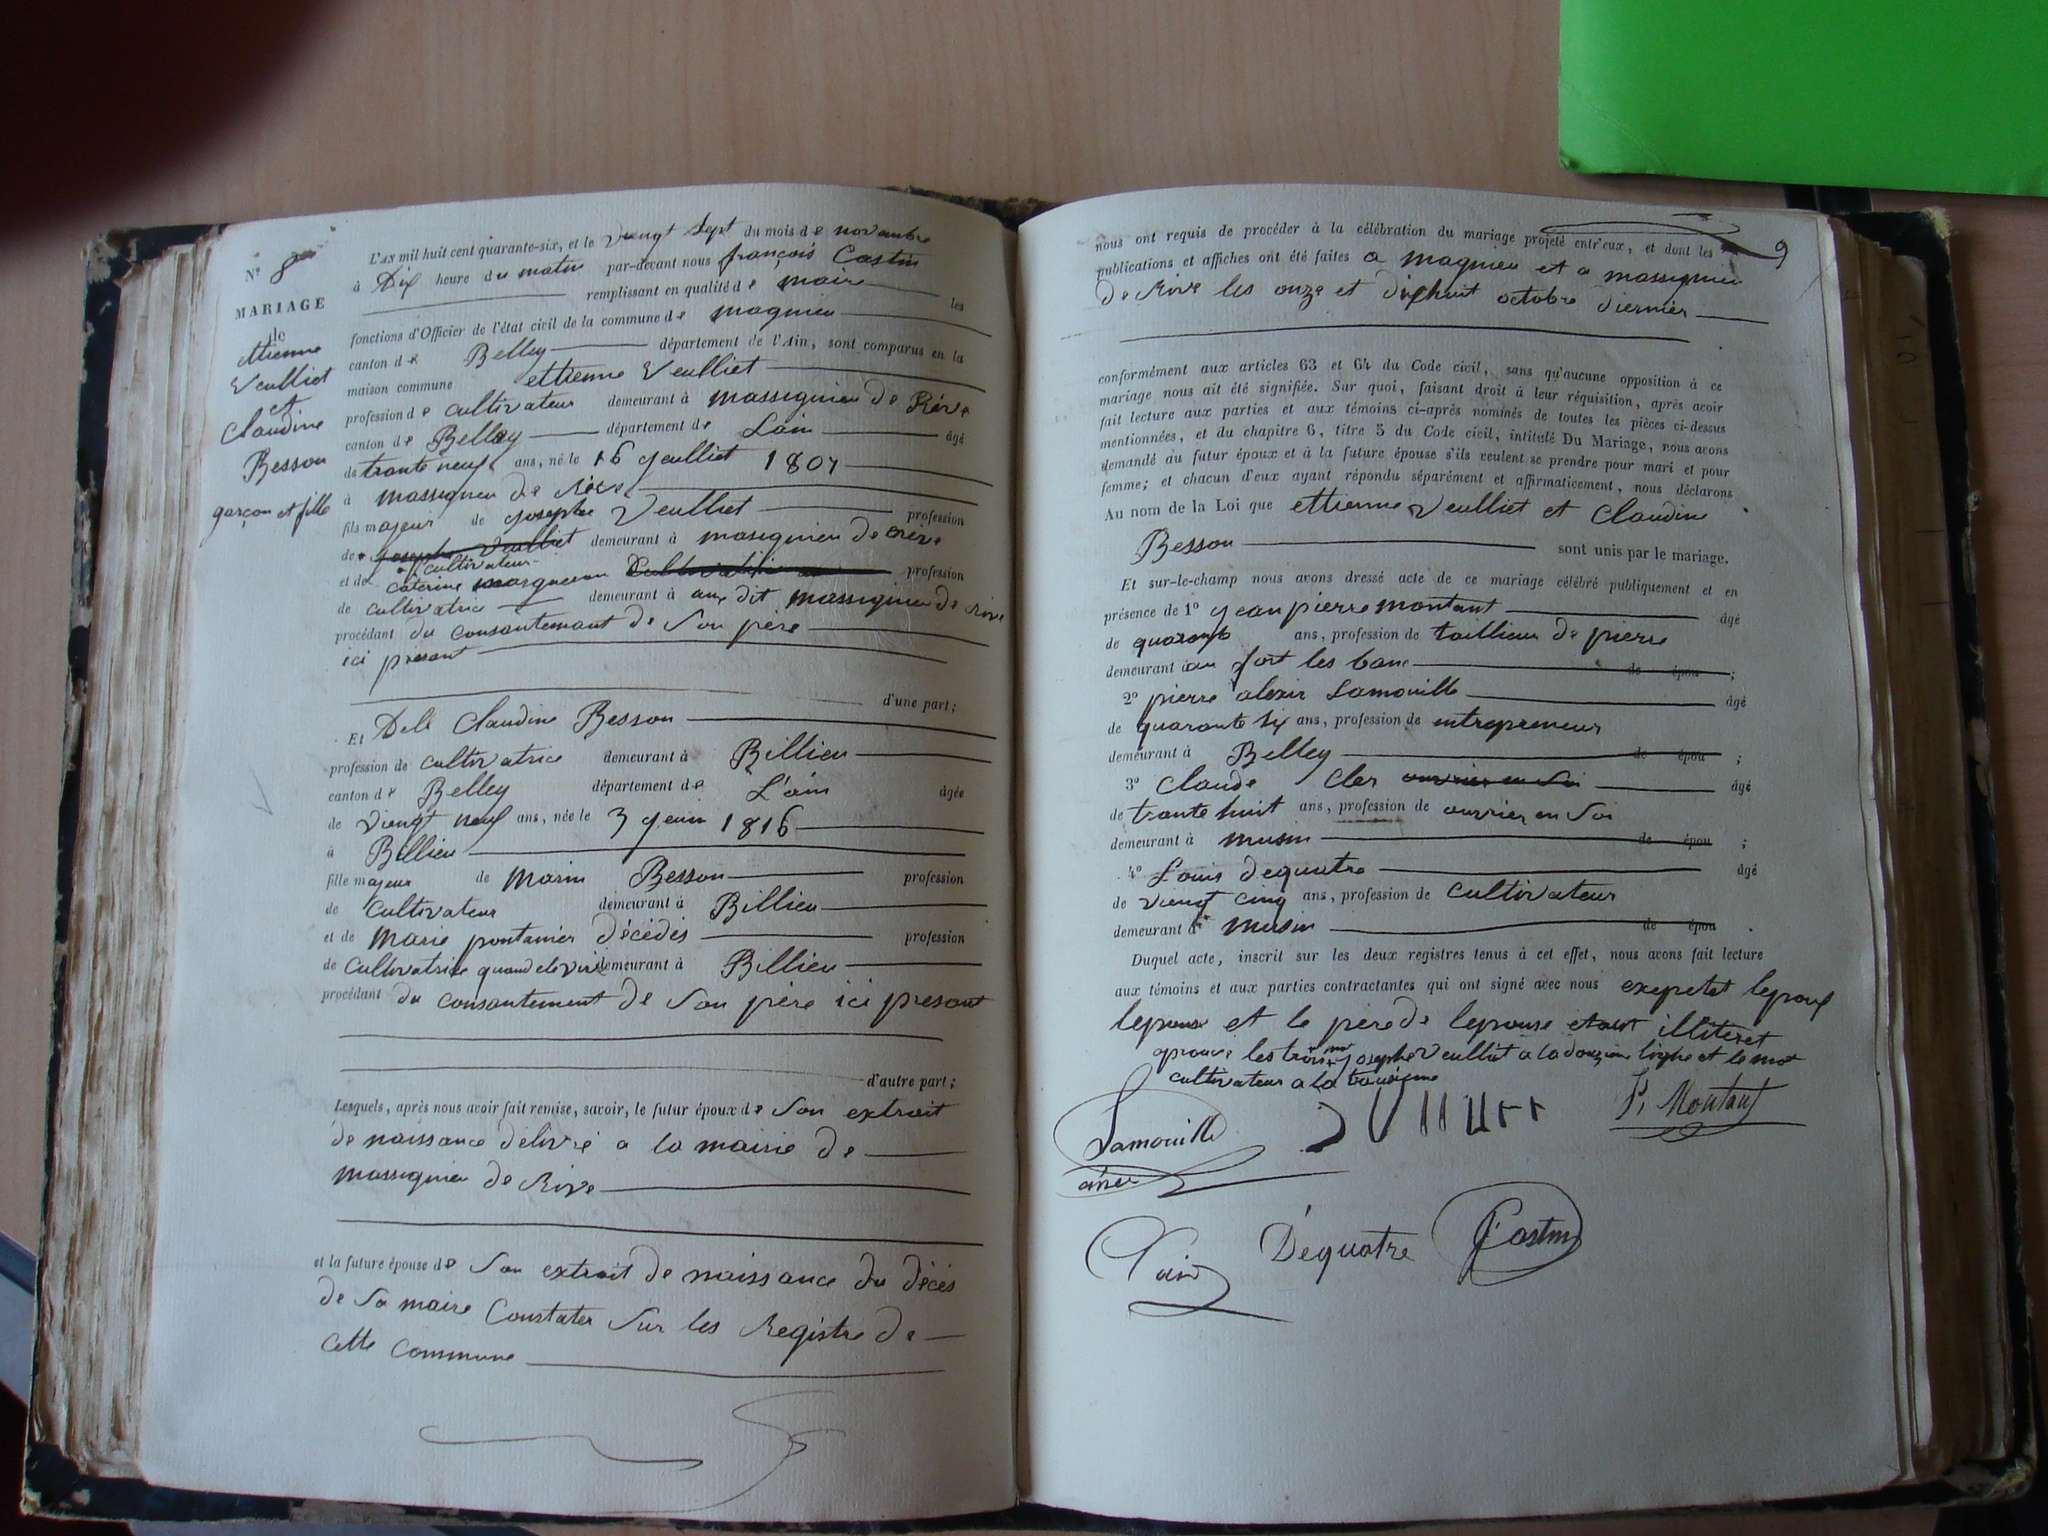 N° 8
MARIAGE
de
ettienne
Veulliet
et
Claudine
Besson
garçon et fille
L'AN mil huit cent quarante-six, et le vuengt sept du mois de novambre
à Dix heure du matin par-devant nous françois Castin
remplissant en qualité de maire les
fonctions d'Officier de l'état civil de la commune de magnieu
canton de Belley département de l'Ain, sont comparus en la
maison commune ettienne Veulliet
profession de cultivateur demeurant à massignieu de Rive
canton de Belley département de L'ain âgé
de trante neuf ans, né le 16 jeulliet 1807
à massignieu de Rive
fils majeur de josephe Veulliet profession
de josephe Veulliet demeurant à masignieu de Rive
cultivateur
et de caterine margueron cultivatrice profession
de cultivatrice demeurant à aux dit massignieu de Rive
procédant du consantemant de Son père
ici présant
d'une part;
Et Dell Claudine Besson
profession de cultivatrice demeurant à Billieu
canton de Belley département de L'ain âgée
de viengt neuf ans, née le 3 jeuin 1816
à Billieu
fille majeur de marin Besson profession
de cultivateur demeurant à Billieu
et de marie pontanier décédés profession
de cultivatrice quand el vivé demeurant à Billieu
procédant du consantement de Son père ici présant
d'autre part;
Lesquels, après nous avoir fait remise, savoir, le futur époux de Son extrait
de naissance délivré a la mairie de
massignieu de Rive
et la future épouse de Son extrait de naissance du décés
de Sa maire Constater Sur les Registre de
cette commune
9
nous ont requis de procéder à la célébration du mariage projeté entr'eux, et dont les
publications et affiches ont été faites a magnieu et a massignieu
de Rive les onze et dixhuit octobre diernier
conformément aux articles 63 et 64 du Code civil, sans qu'aucune opposition à ce
mariage nous ait été signifiée. Sur quoi, faisant droit à leur réquisition, après avoir
fait lecture aux parties et aux témoins ci-après nominés de toutes les pièces ci-dessus
mentionnées, et du chapitre 6, titre 5 du Code civil, intitulé Du Mariage, nous avons
demandé au futur époux et à la future épouse s'ils veulent se prendre pour mari et pour
femme; et chacun d'eux ayant répondu séparément et affirmativement, nous déclarons
Au nom de la Loi que ettienne Veulliet et Claudine
Besson sont unis par le mariage.
Et sur-le-champ nous avons dressé acte de ce mariage célébré publiquement et en
présence de 1° jean pierre montant âgé
de quarante ans, profession de taillieur de pierre
demeurant au fort les banc de épou ;
2° pierre alexir Lamouille âgé
de quarante six ans, profession de entrepreneur
demeurant à Belley de épou ;
3° Claude Cler ouvrier en Soi âgé
de trante huit ans, profession de ouvrier en Soi
demeurant à musin de épou ;
4° Louis dequatre âgé
de viengt cinq ans, profession de cultivateur
demeurant à musin de épou
Duquel acte, inscrit sur les deux registres tenus à cet effet, nous avons fait lecture
aux témoins et aux parties contractantes qui ont signé avec nous exepetet lepoux
lepouse et le père de lepouse etant illiteret
aprouvé les trois mot josephe Veulliet a la douzieme lighe et le mot
cultivateur a la trausieme
Lamouille
ainée
P. Montant
Déquatre
Castin